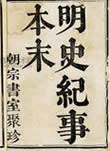 明史紀事
本末
朝宗書室聚珍